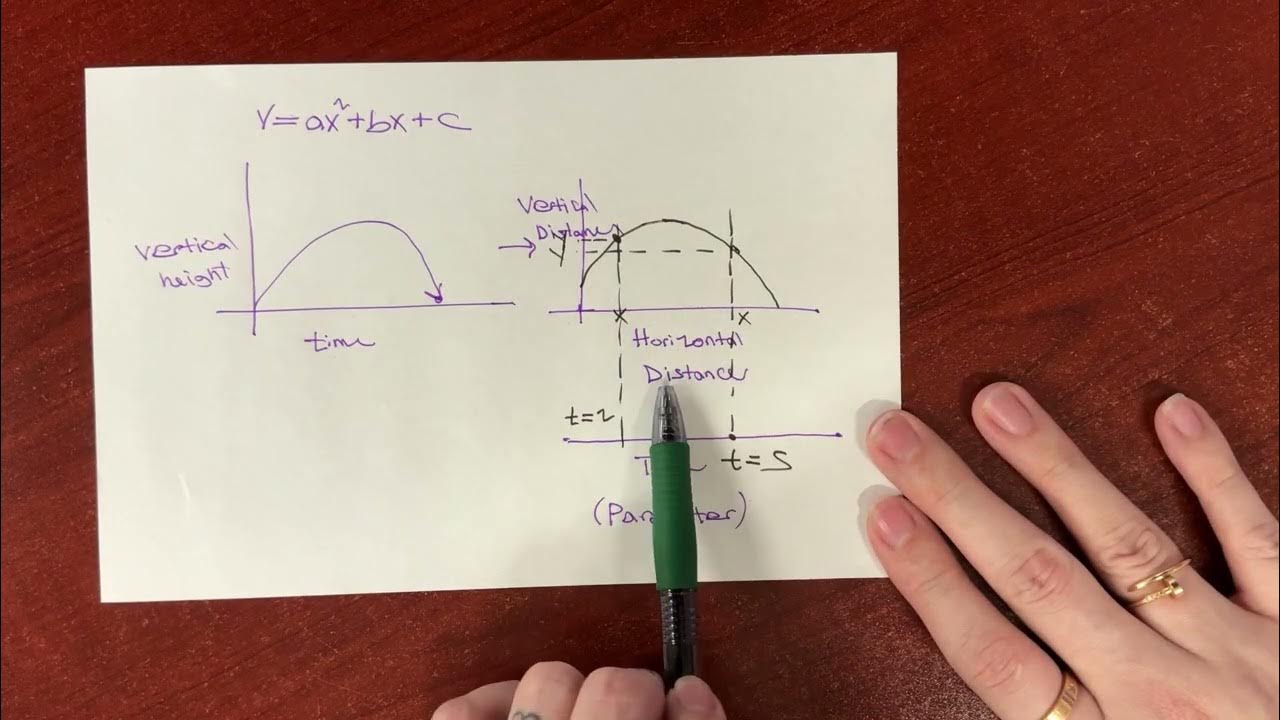 y=ax²+bx+c
vertical
height
time
Vertical
Distance
y
x
x
Horizontal
Distance
t=2
t=5